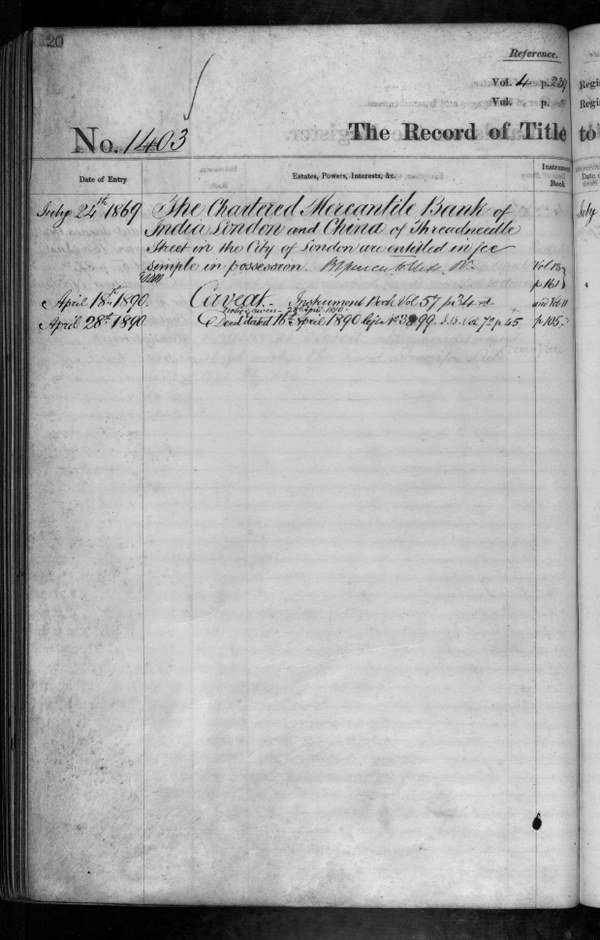 20
Reference.
Vol. 4 p.
Vol. p.
No. 1403 The Record of Title to
Regi
Regi
Date of Entry Estates, Powers, Interests, &c. Instrument Book
July 24th 1869 The Chartered Mercantile Bank of
India London and China of Threadneedle
Street in the City of London are entitled in fee
simple in possession Vol 13
April 15th 1890 Caveat. Instrument Book Vol. 57 p 34
28th April 1890
April 28th 1890 Deed dated 16th April 1890 Vol. 72 p 45 p 105
July